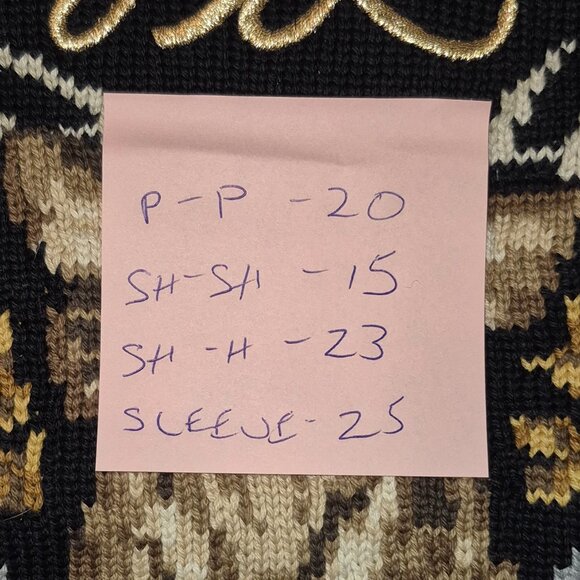 P-P -20
SH-SH -15
SH-H -23
SLEEVE-25